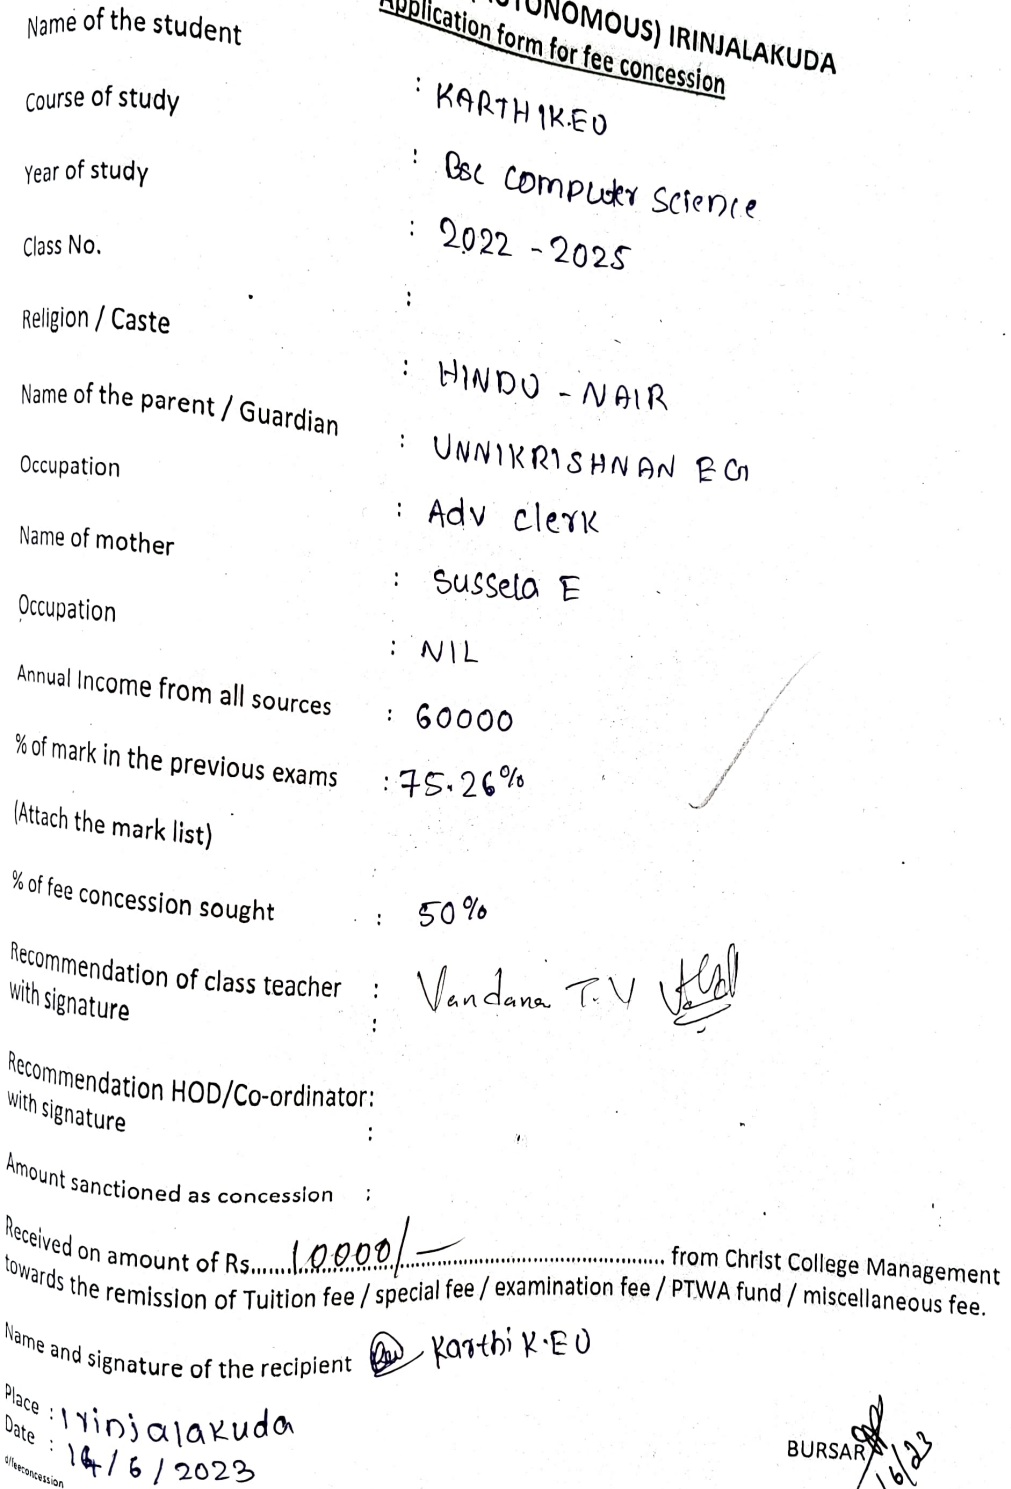 (AUTONOMOUS) IRINJALAKUDA
Application form for fee concession
Name of the student : KARTHIK.EU
Course of study : Bsc computer science
Year of study : 2022 - 2025
Class No. :
Religion / Caste : HINDU - NAIR
Name of the parent / Guardian : UNNIKRISHNAN EG
Occupation : Adv clerk
Name of mother : Sussela E
Occupation : NIL
Annual Income from all sources : 60000
% of mark in the previous exams : 75.26%
(Attach the mark list)
% of fee concession sought : 50%
Recommendation of class teacher : Vandana T.V
with signature :
Recommendation HOD/Co-ordinator:
with signature :
Amount sanctioned as concession :
Received on amount of Rs.......10000/-.......... from Christ College Management
towards the remission of Tuition fee / special fee / examination fee / PTWA fund / miscellaneous fee.
Name and signature of the recipient Karthik.EU
Place : Irinjalakuda
Date : 14/6/2023
BURSAR
16/23
d/feeconcession